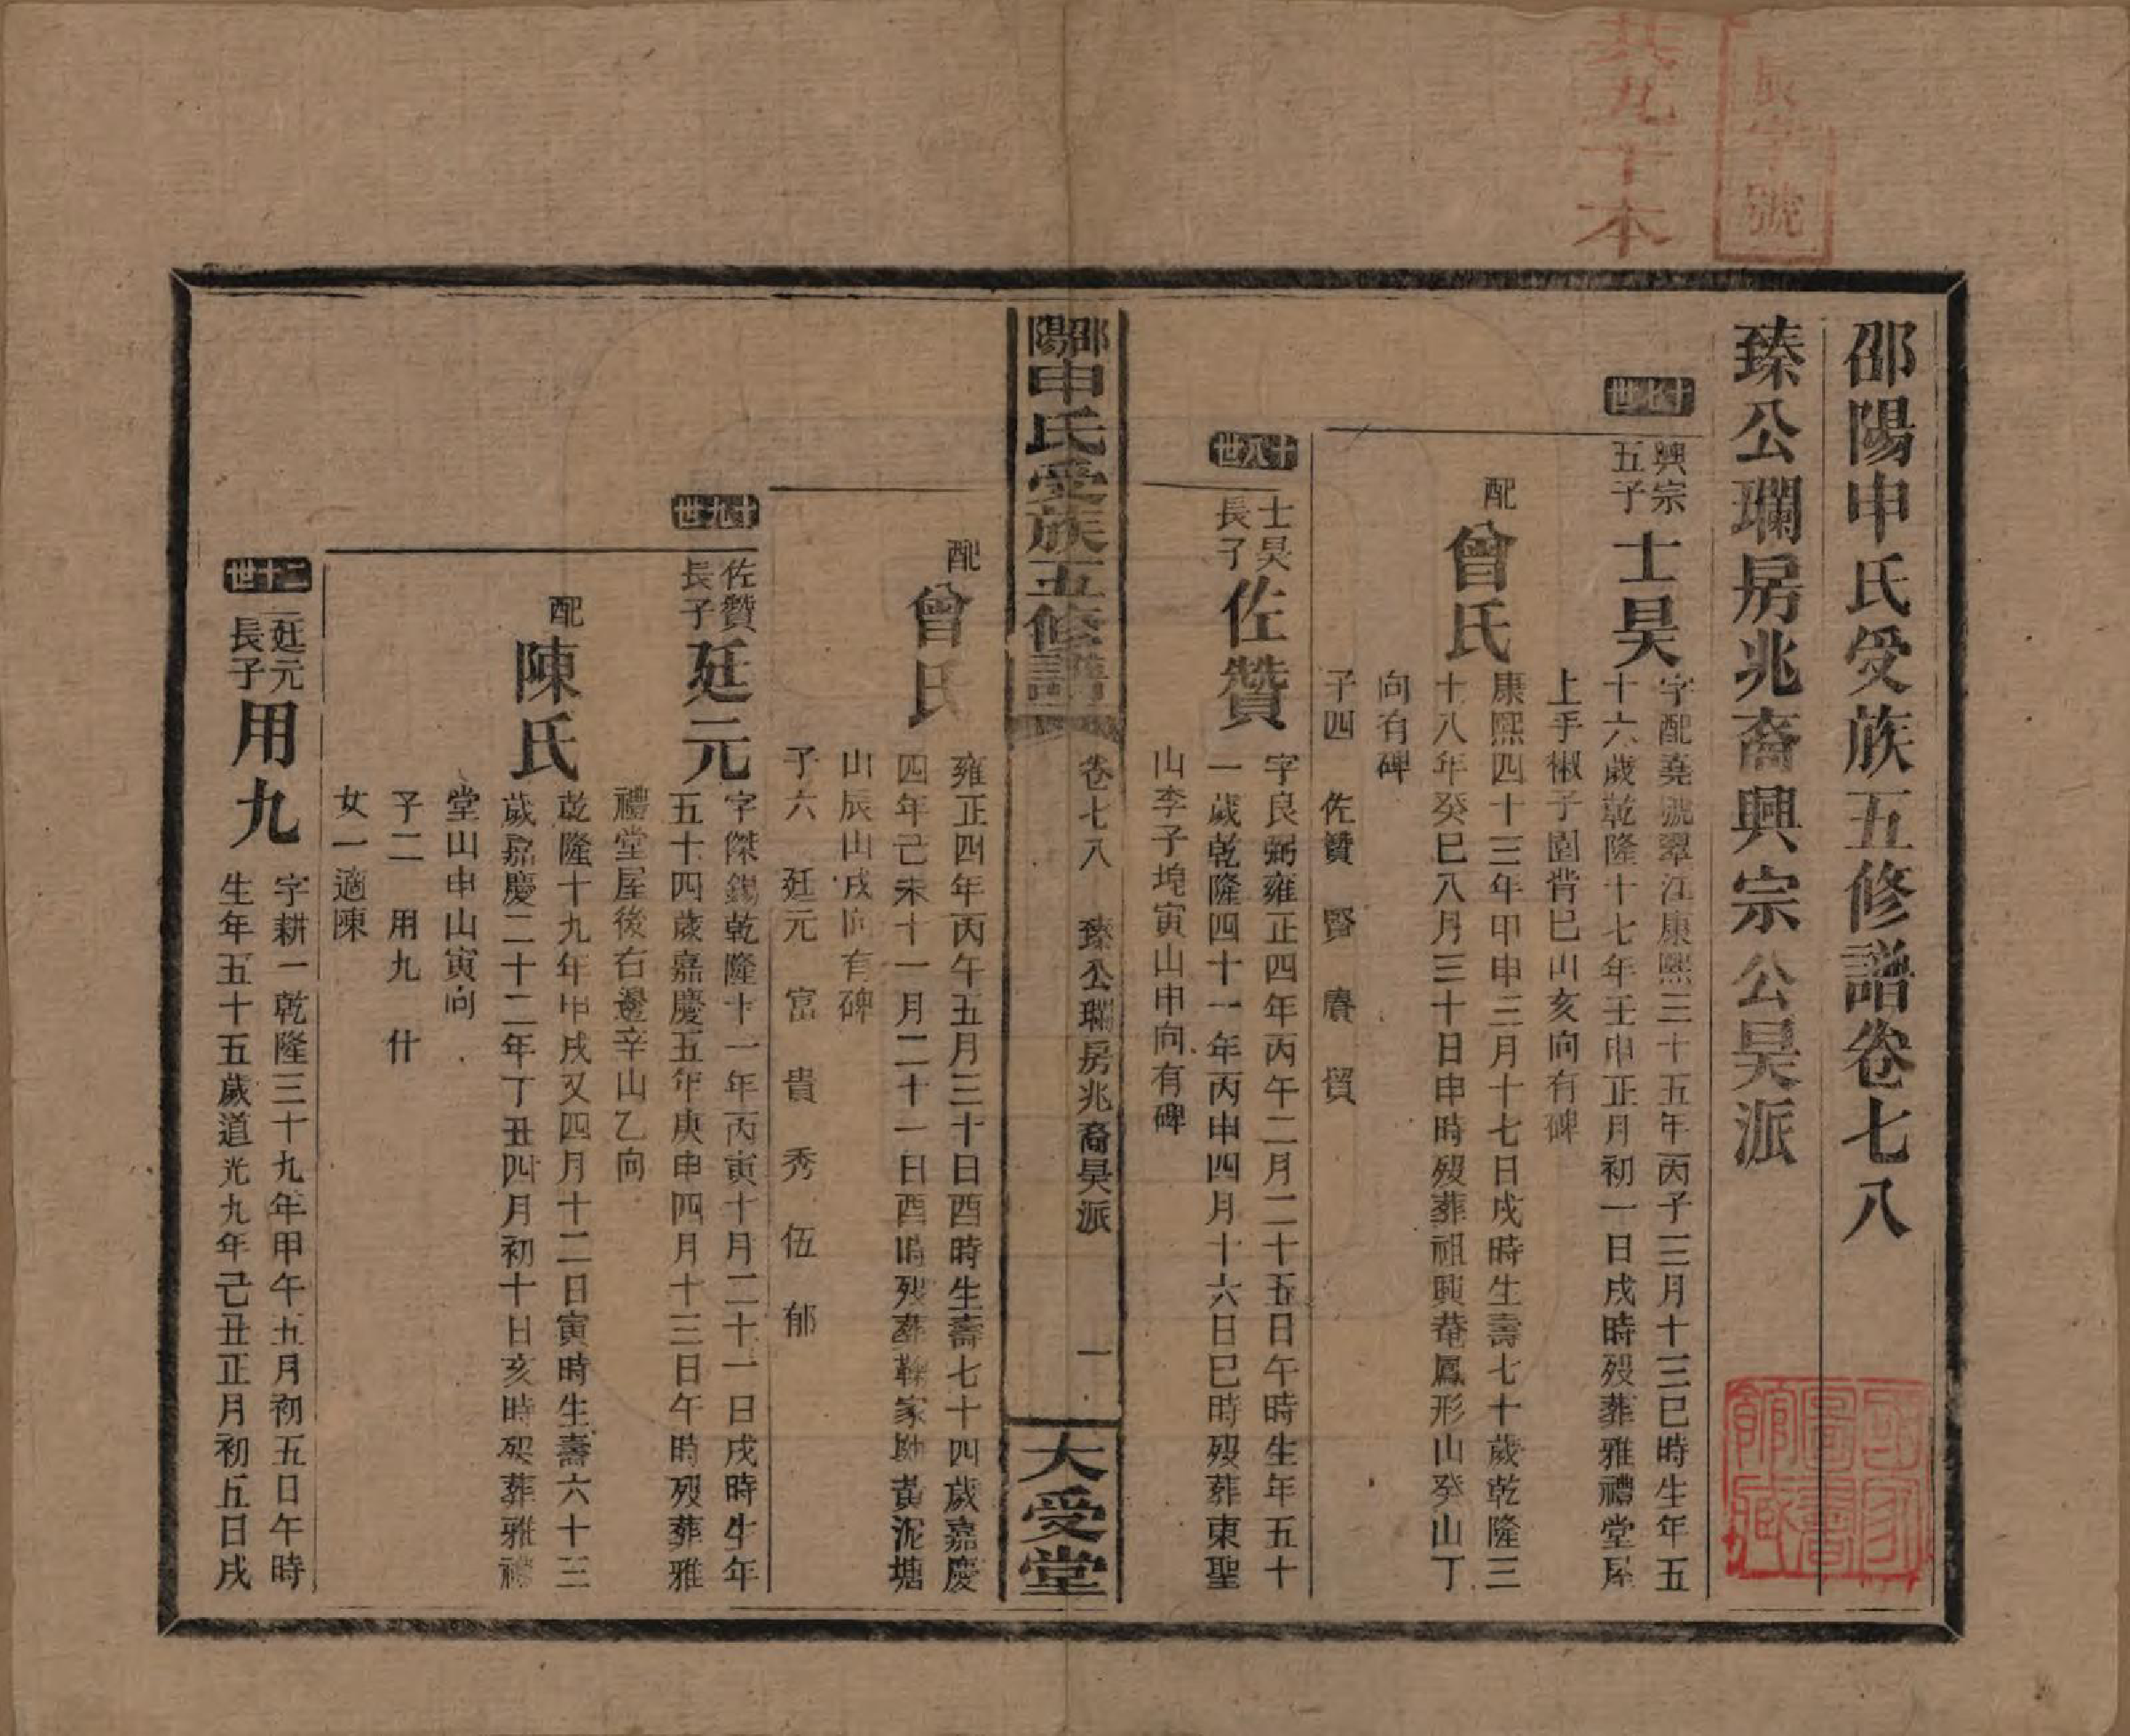 共九十本
號
邵陽申氏受族五修譜卷七八
臻公瓓房兆裔興宗公昊派
十七世
興宗
五子
士昊
字配堯號翠江康熙三十五年丙子三月十三巳時生年五
十六歲乾隆十七年壬申正月初一日戌時歿葬雅禮堂屋
上手椒子園背巳山亥向有碑
配
曾氏
康熙四十三年甲申三月十七日戌時生壽七十歲乾隆三
十八年癸巳八月三十日申時歿葬祖興菴鳳形山癸山丁
向有碑
子四 佐贊 賢 賡 貿
十八世
士昊
長子
佐贊
字良弼雍正四年丙午二月二十五日午時生年五十
一歲乾隆四十一年丙申四月十六日巳時歿葬東聖
山李子堍寅山申向有碑
邵陽申氏受族五修譜
卷七八 臻公瓓房兆裔昊派
一
大受堂
配
曾氏
雍正四年丙午五月三十日酉時生壽七十四歲嘉慶
四年己未十一月二十一日酉時歿葬鞠家坳黃泥塘
山辰山戌向有碑
子六 廷元 富 貴 秀 伍 郁
十九世
佐贊
長子
廷元
字傑錫乾隆十一年丙寅十月二十一日戌時生年
五十四歲嘉慶五年庚申四月十三日午時歿葬雅
禮堂屋後右邊辛山乙向
配
陳氏
乾隆十九年甲戌又四月十二日寅時生壽六十三
歲嘉慶二十二年丁丑四月初十日亥時歿葬雅禮
堂山申山寅向
子二 用九 什
女一適陳
二十世
廷元
長子
用九
字耕一乾隆三十九年甲午五月初五日午時
生年五十五歲道光九年己丑正月初五日戌
國家圖書館藏